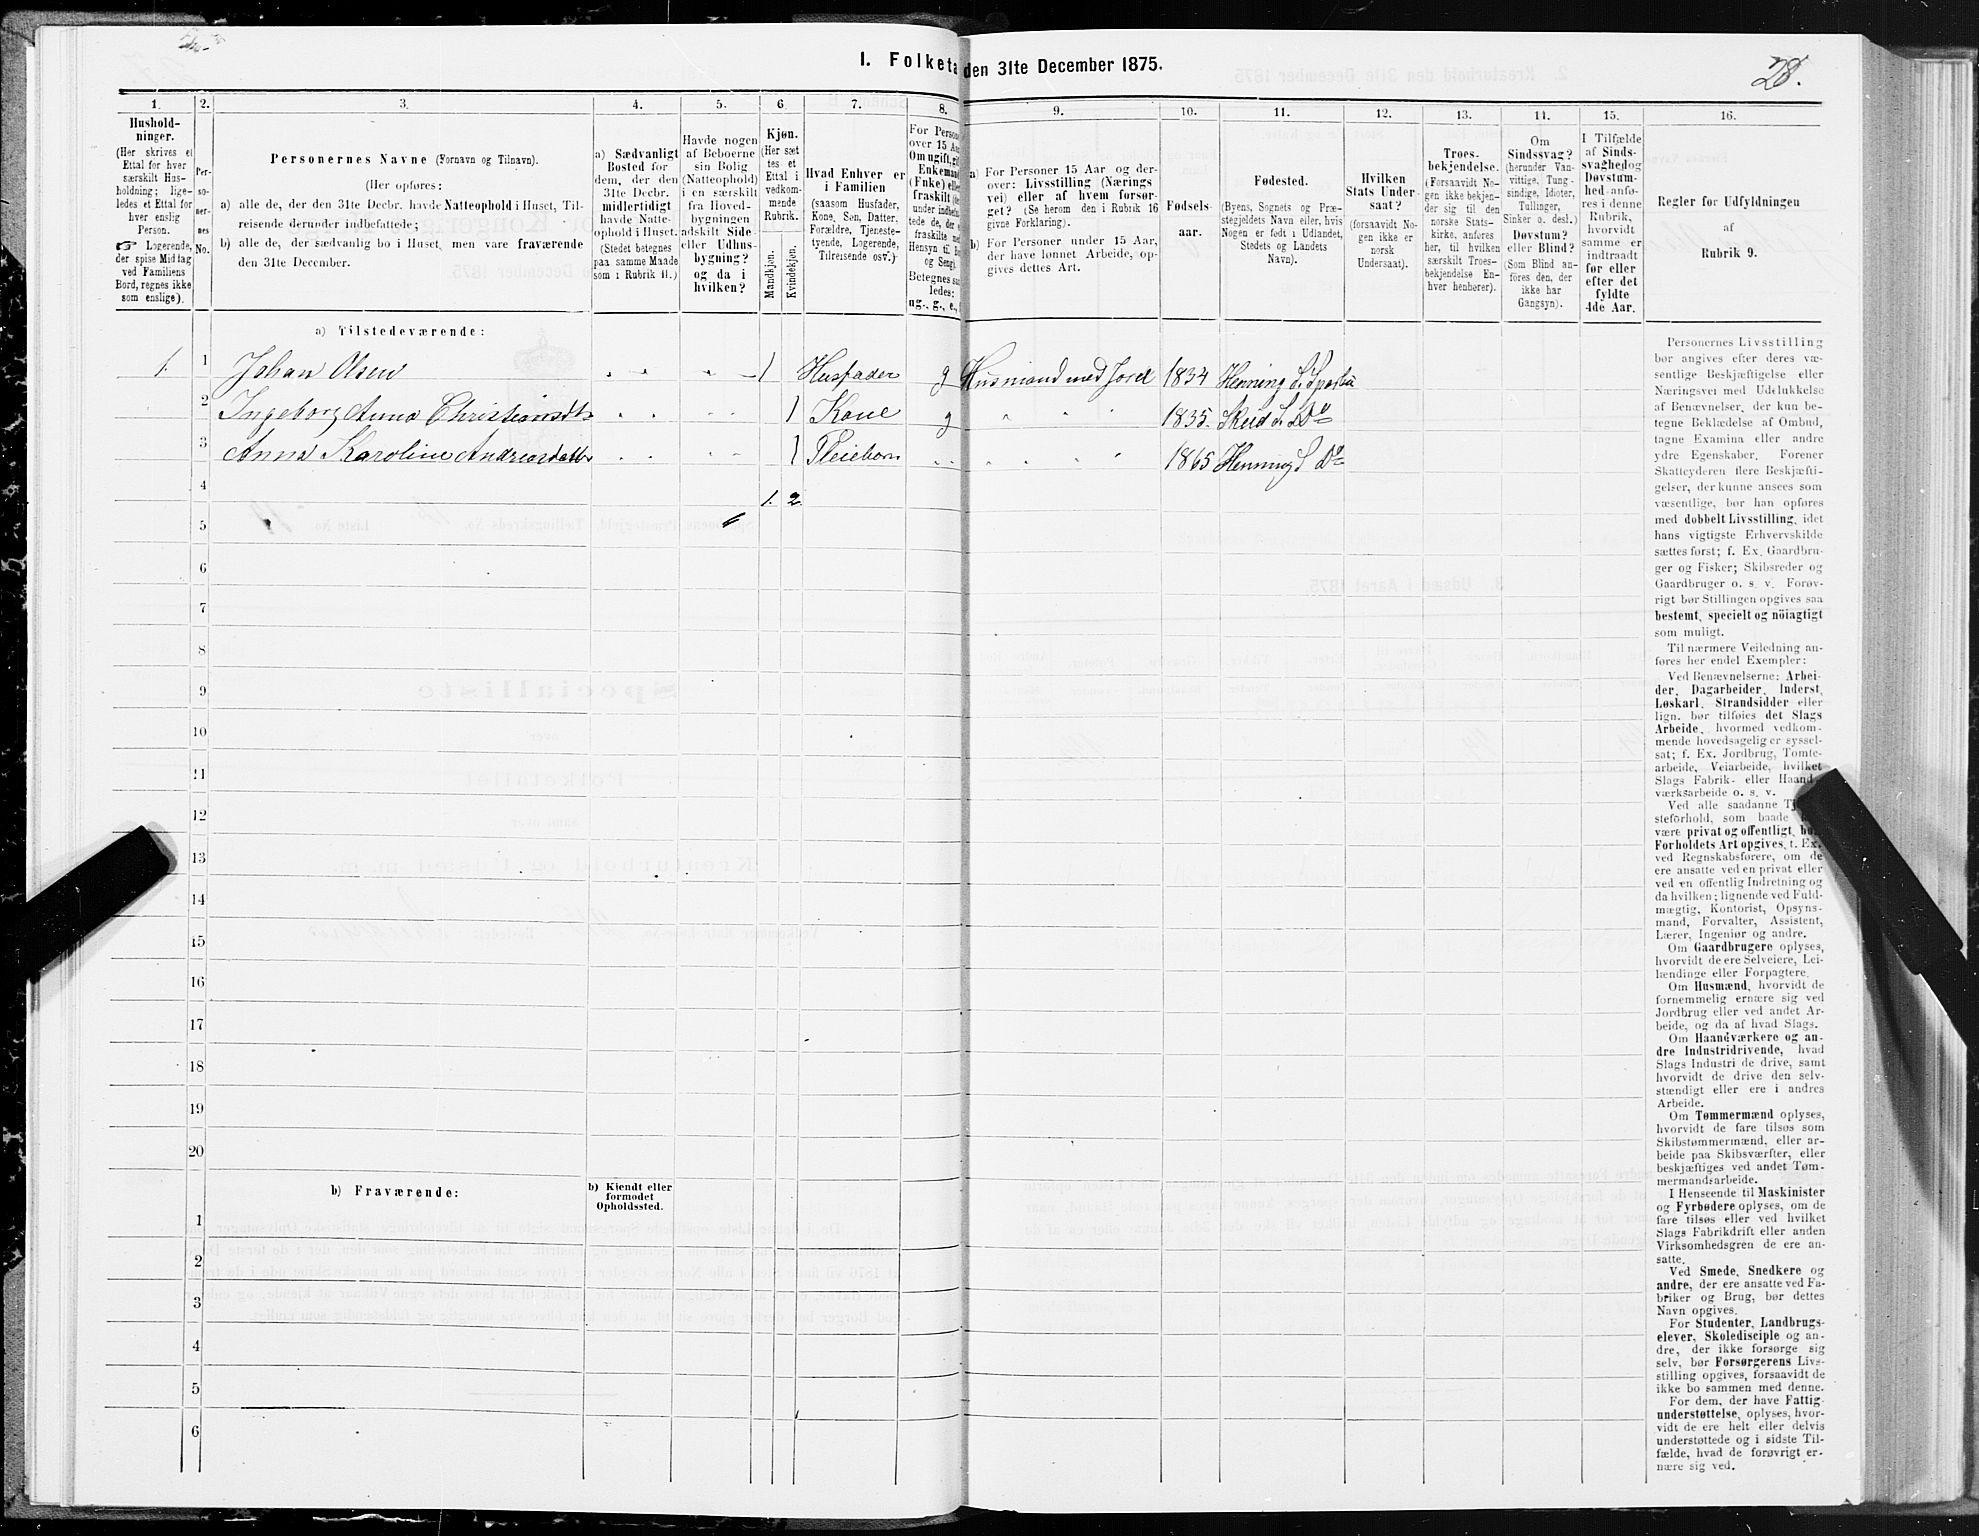 28.
1. Folketa
den 31te December 1875.
1. 2. 3. 4. 5. 6. 7. 8. 9. 10. 11. 12. 13. 14. 15. 16.
Hushold-
ninger.
(Her skrives et
Ettal for hver
særskilt Hus-
holdning; lige-
ledes et Ettal for
hver enslig
Person.
☞ Logerende,
der spise Middag
ved Familiens
Bord, regnes ikke
som enslige).
Per-
so-
ner-
nes
No.
Personernes Navne (Fornavn og Tilnavn).
(Her opføres:
a) alle de, der den 31te Decbr. havde Natteophold i Huset, Til-
reisende derunder indbefattede;
b) alle de, der sædvanlig bo i Huset, men vare fraværende
den 31te December.
a) Sædvanligt
Bosted for
dem, der den
31te Decbr.
midlertidigt
havde Natte-
ophold i Huset.
(Stedet betegnes
paa samme Maade
som i Rubrik 11.)
Havde nogen
af Beboerne
sin Bolig
(Natteophold)
i en særskilt
fra Hoved-
bygningen
adskilt Side-
eller Udhus-
bygning?
og da i
hvilken?
Kjøn.
(Her sæt-
tes et
Ettal i
vedkom-
mende
Rubrik.
Mandkjøn.
Kvindekjøn.
Hvad Enhver er
i Familien
(saasom Husfader,
Kone, Søn, Datter,
Forældre, Tjeneste-
tyende, Logerende,
Tilreisende osv.)
For Person
over 15 Aa
Om ugift, gif
Enkemand
(Enke) elle
fraskilt (de
under indbefat-
tede de, der e
fraskilte med
Hensyn til B
og Seng).
Betegnes saa
ledes:
ug., g., e.,
a) For Personer 15 Aar og der-
over: Livsstilling (Nærings-
vei) eller af hvem forsør-
get? (Se herom den i Rubrik 16
givne Forklaring).
b) For Personer under 15 Aar,
der have lønnet Arbeide, op-
gives dettes Art.
Fødsels-
aar.
Fødested.
(Byens, Sognets og Præ-
stegjeldets Navn eller, hvis
Nogen er født i Udlandet,
Stedets og Landets
Navn).
Hvilken
Stats Under-
saat?
(forsaavidt No-
gen ikke er
norsk
Undersaat).
Troes-
bekjendelse.
(Forsaavidt No-
gen ikke bekjen-
der sig til den
norske Stats-
kirke, anføres
her, til hvilken
særskilt Troes-
bekjendelse En-
hver henhører).
Om
Sindssvag?
(herunder Van-
vittige, Tung-
sindige, Idioter,
Tullinger,
Sinker o. desl.)
Døvstum?
eller Blind?
(Som Blind an-
føres den, der
ikke har
Gangsyn).
I Tilfælde
af Sinds-
svaghed og
Døvstum-
hed anfø-
res i denne
Rubrik,
hvorvidt
samme er
indtraadt
før eller
efter det
fyldte
4de Aar.
Regler for Udfyldningen
af
Rubrik 9.
a) Tilstedeværende:
1. 1 Johan Olsen 1 Husfader g Husmand med Jord 1834 Henning S. Sparbu
2 Ingeborg Anna Christiansdtr 1 Kone g " " " 1835. Skeid S. Do
3 Anna Karoline Andreasdatter 1 Pleiebarn " " " 1865 Henning S Do
4 1. 2
5
6
7
8
9
10
11
12
13
14
15
16
17
18
19
20
b) Fraværende:
b) Kjendt eller
formodet
Opholdssted.
1
2
3
4
5
6
Personernes Livsstilling
bør angives efter deres væ-
sentlige Beskjæftigelse eller
Næringsvei med Udelukkelse
af Benævnelser, der kun be-
tegne Beklædelse af Ombud,
tagne Examina eller andre
ydre Egenskaber. Forener
Skatteyderen flere Beskjæfti-
gelser, der kunne ansees som
væsentlige, bør han opføres
med dobbelt Livsstilling, idet
hans vigtigste Erhvervskilde
sættes først; f. Ex. Gaardbru-
ger og Fisker; Skibsreder og
Gaardbruger o. s. v. Forøv-
rigt bør Stillingen opgives saa
bestemt, specielt og nöiagtigt
som muligt.
Til nærmere Veiledning an-
føres her endel Exempler:
Ved Benævnelserne: Arbei-
der, Dagarbeider, Inderst,
Løskarl, Strandsidder eller
lign. bør tilføies det Slags
Arbeide, hvormed vedkom-
mende hovedsagelig er syssel-
sat; f. Ex. Jordbrug, Tomte-
arbeide, Veiarbeide, hvilket
Slags Fabrik- eller Haand-
værksarbeide o. s. v.
Ved alle saadanne
steforhold, som baade
være privat og offentligt,
Forholdets Art opgives, f. Ex.
ved Regnskabsførere, om de
ere ansatte ved en privat eller
ved en offentlig Indretning og
da hvilken; lignende ved Fuld-
mægtig, Kontorist, Opsyns-
mand, Forvalter, Assistent,
Lærer, Ingeniør og andre.
Om Gaardbrugere oplyses,
hvorvidt de ere Selveiere, Lei-
lændinge eller Forpagtere.
Om Husmænd, hvorvidt de
fornemmelig ernære sig ved
Jordbrug eller ved andet Ar-
beide, og da af hvad Slags.
Om Haandværkere og an-
dre Industridrivende, hvad
Slags Industri de drive, samt
hvorvidt de drive den selv-
stændigt eller ere i andres
Arbeide.
Om Tømmermænd oplyses,
hvorvidt de fare tilsøs som
Skibstømmermænd, eller ar-
beide paa Skibsværfter, eller
beskjæftiges ved andet Tøm-
mermandsarbeide.
I Henseende til Maskinister
og Fyrbødere oplyses, om de
fare tilsøs eller ved hvilket
Slags Fabrikdrift eller anden
Virksomhedsgren de ere an-
satte.
Ved Smede, Snedkere og
andre, der ere ansatte ved Fa-
briker og Brug, bør dettes
Navn opgives.
For Studenter, Landbrugs-
elever, Skoledisciple og an-
dre, der ikke forsørge sig
selv, bør Forsørgerens Livs-
stilling opgives, forsaavidt de
ikke bo sammen med denne.
For dem, der have Fattig-
understøttelse, oplyses, hvor-
vidt de ere helt eller delvis
understøttede og i sidste Til-
fælde, hvad de forøvrigt er-
nære sig ved.